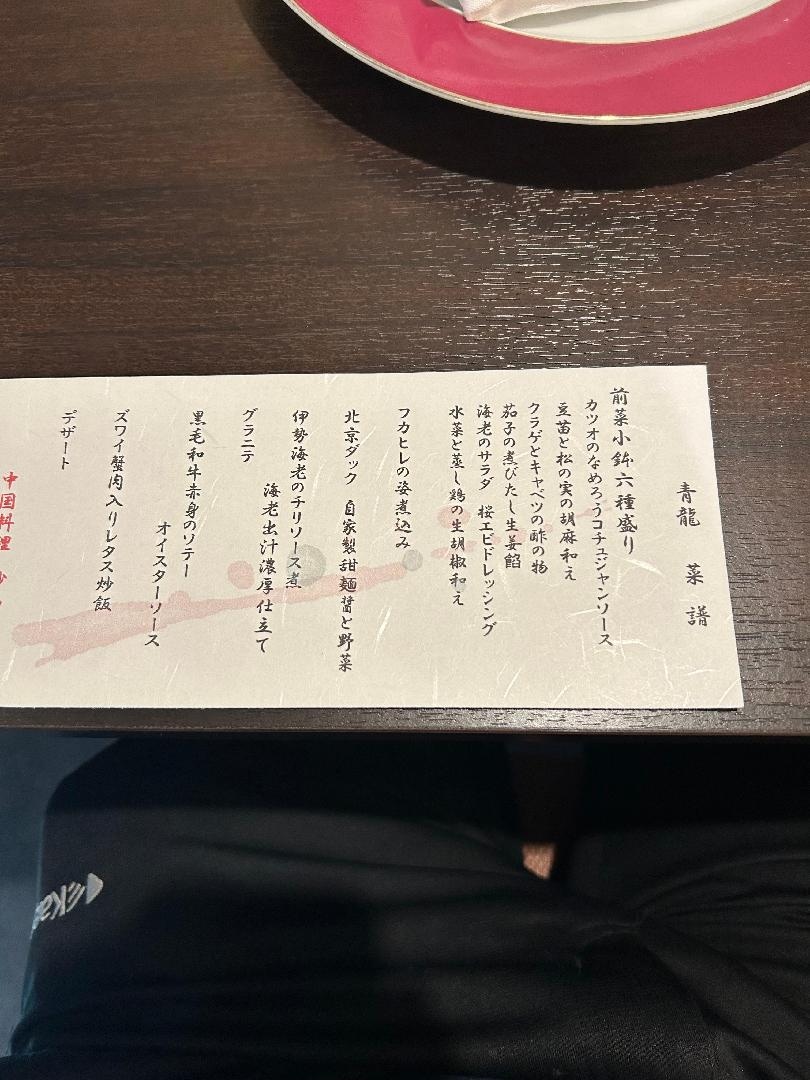 青龍 菜譜
前菜小鉢六種盛り
カツオのなめろうコチュジャンソース
豆苗と松の実の胡麻和え
クラゲとキャベツの酢の物
茄子の煮びたし生姜餡
海老のサラダ 桜エビドレッシング
水菜と蒸し鶏の生胡椒和え
フカヒレの姿煮込み
北京ダック 自家製甜麺醤と野菜
伊勢海老のチリソース煮
海老出汁濃厚仕立て
グラニテ
黒毛和牛赤身のソテー
オイスターソース
ズワイ蟹肉入りレタス炒飯
デザート
中国料理